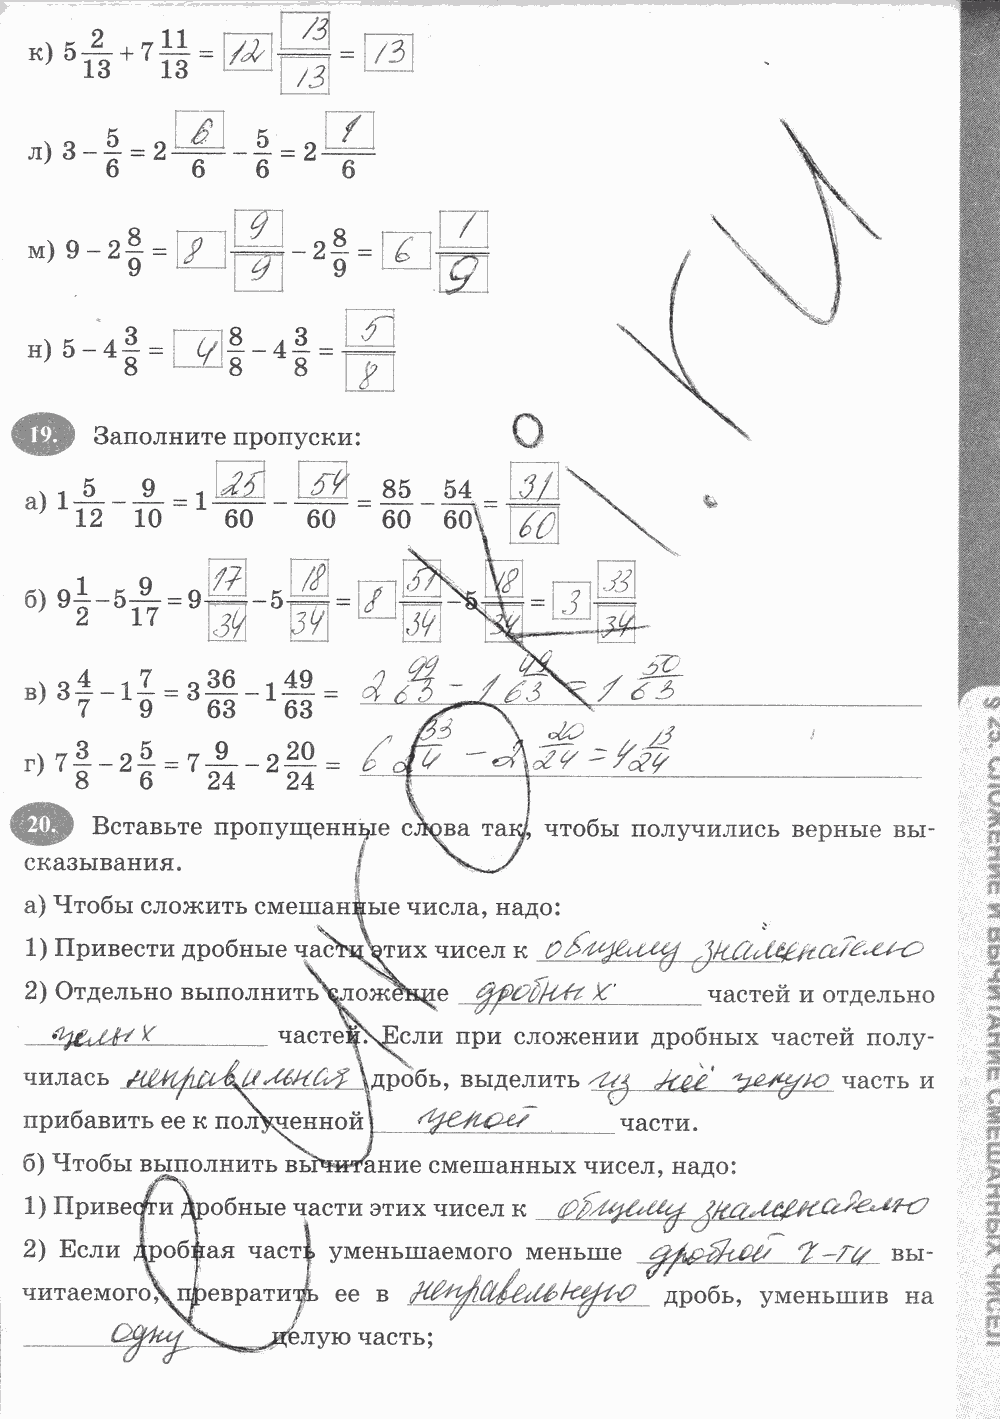 к) 5 2/13 + 7 11/13 = 12 13/13 = 13
л) 3 – 5/6 = 2 6/6 – 5/6 = 2 1/6
м) 9 – 2 8/9 = 8 9/9 – 2 8/9 = 6 1/9
н) 5 – 4 3/8 = 4 8/8 – 4 3/8 = 5/8
19. Заполните пропуски:
а) 1 5/12 – 9/10 = 1 25/60 – 54/60 = 85/60 – 54/60 = 31/60
б) 9 1/2 – 5 9/17 = 9 17/34 – 5 18/34 = 8 51/34 – 5 18/34 = 3 33/34
в) 3 4/7 – 1 7/9 = 3 36/63 – 1 49/63 = 2 99/63 – 1 49/63 = 1 50/63
г) 7 3/8 – 2 5/6 = 7 9/24 – 2 20/24 = 6 33/24 – 2 20/24 = 4 13/24
20. Вставьте пропущенные слова так, чтобы получились верные вы-
сказывания.
а) Чтобы сложить смешанные числа, надо:
1) Привести дробные части этих чисел к общему знаменателю
2) Отдельно выполнить сложение дробных частей и отдельно
целых частей. Если при сложении дробных частей полу-
чилась неправильная дробь, выделить из неё целую часть и
прибавить ее к полученной целой части.
б) Чтобы выполнить вычитание смешанных чисел, надо:
1) Привести дробные части этих чисел к общему знаменателю
2) Если дробная часть уменьшаемого меньше дробной ч-ти вы-
читаемого, превратить ее в неправельную дробь, уменьшив на
одну целую часть;
§ 25. СЛОЖЕНИЕ И ВЫЧИТАНИЕ СМЕШАННЫХ ЧИСЕЛ